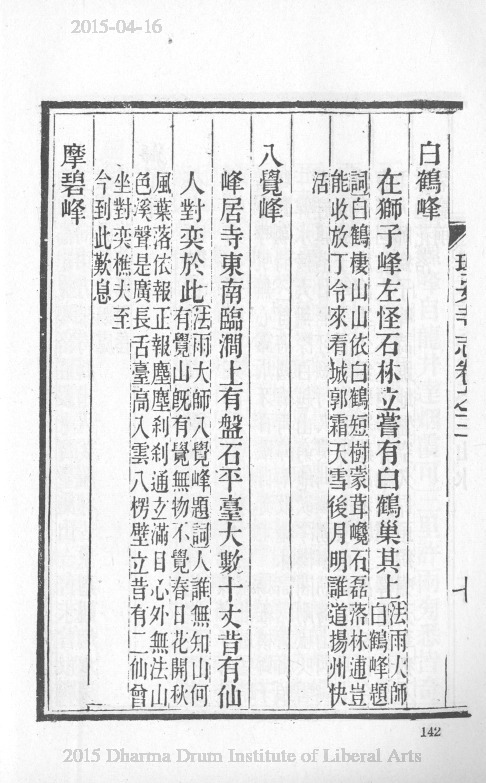 2015-04-16
理安寺志卷之三
七
白鶴峰
在獅子峰左怪石林立嘗有白鶴巢其上法雨大師
白鶴峰題
詞白鶴棲山山依白鶴短樹蒙茸巉石磊落林逋豈
能收放丁令來看城郭霜天雪後月明誰道揚州快
活
八覺峰
峰居寺東南臨澗上有盤石平臺大數十丈昔有仙
人對奕於此法雨大師八覺峰題詞人誰無知山何
有覺山旣有覺無物不覺春日花開秋
風葉落依報正報塵塵刹刹通立滿目心外無法山
色溪聲是廣長舌臺高入雲八楞壁立昔有二仙曾
坐對奕樵夫至
今到此歎息
摩碧峰
142
2015 Dharma Drum Institute of Liberal Arts